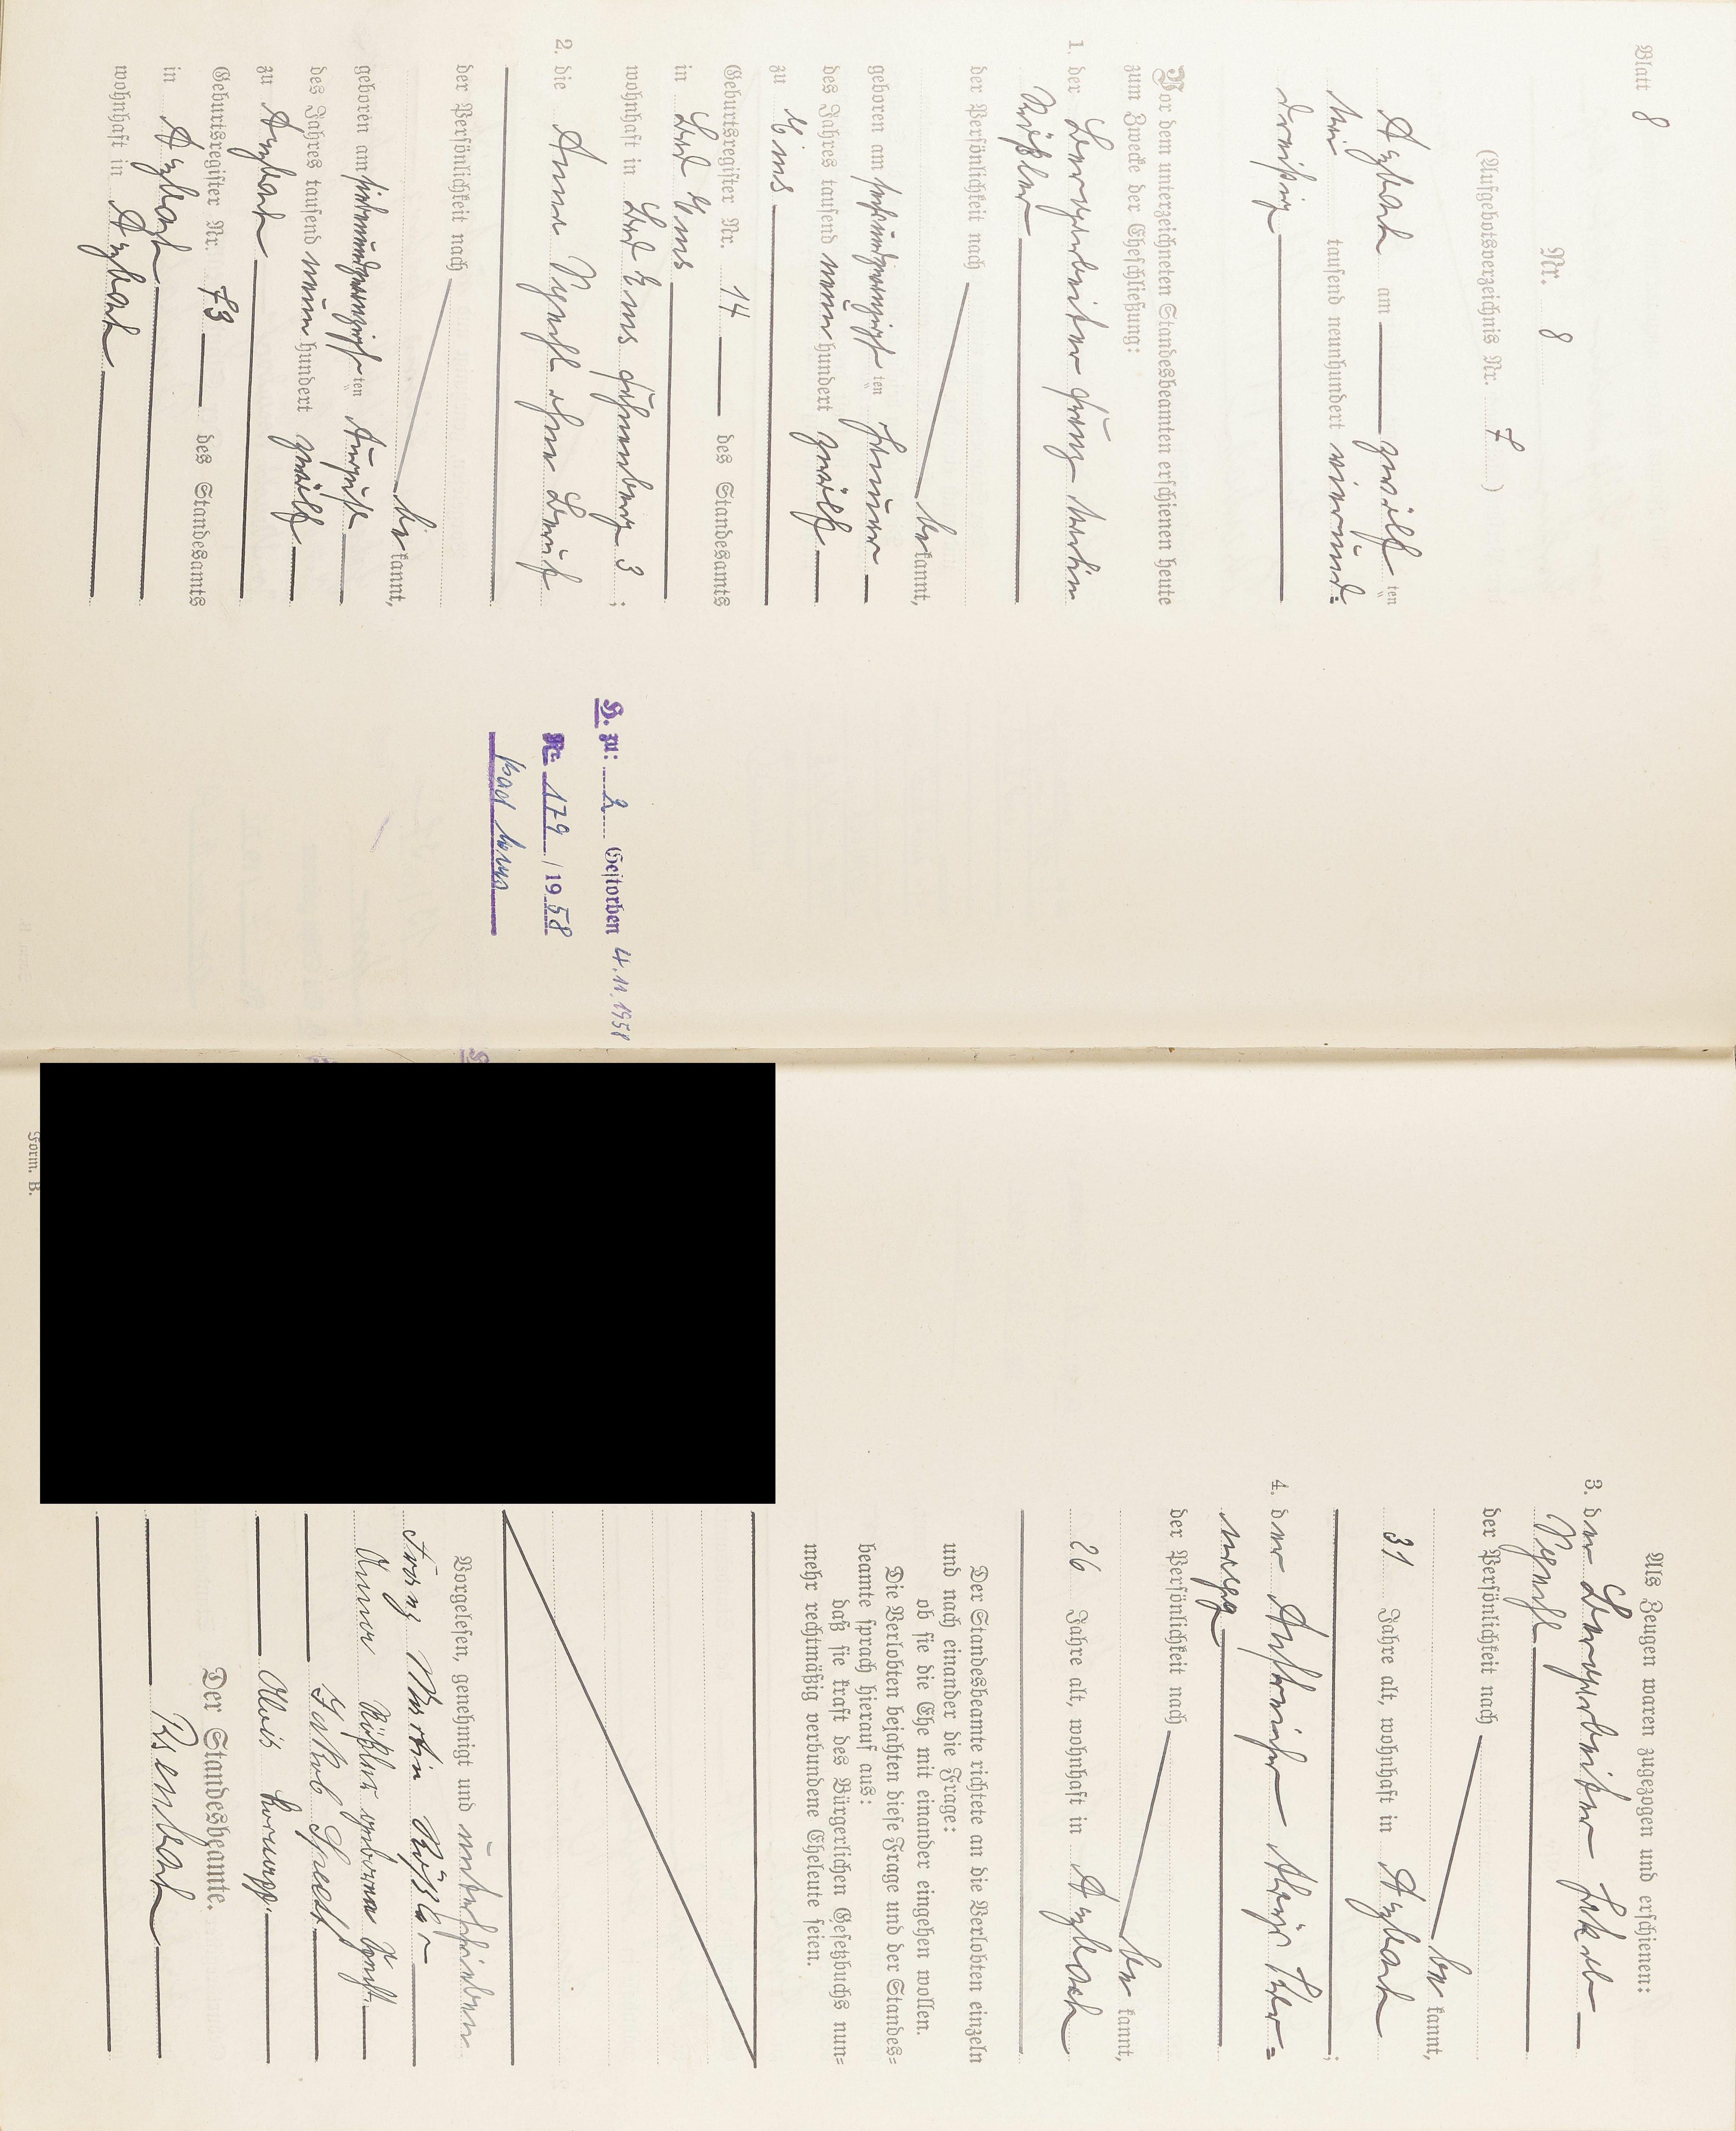 Blatt 8
Nr. 8
(Aufgebotsverzeichnis Nr. 7)
Arzbach am zwölf ten
Mai tausend neunhundert vierund=
dreißig
Vor dem unterzeichneten Standesbeamten erschienen heute
zum Zwecke der Eheschließung:
1. der Bauarbeiter Franz Martin
Rößler
der Persönlichkeit nach
be kannt,
geboren am sechsundzwanzigsten Januar
des Jahres tausend neun hundert zwölf
zu Ems
Geburtsregister Nr. 14 des Standesamts
in Bad Ems
wohnhaft in Bad Ems 3;
2. die Anna Specht ohne Beruf
der Persönlichkeit nach
be kannt,
geboren am siebenundzwanzigsten August
des Jahres tausend neun hundert zwölf
zu Arzbach
Geburtsregister Nr. 73 des Standesamts
in Arzbach
wohnhaft in Arzbach
H. zu: 2 Gestorben 4.11.1958
Nr. 179 / 1958
Bad Ems
Als Zeugen waren zugezogen und erschienen:
3. der Bauarbeiter Jakob
Specht
der Persönlichkeit nach
be kannt,
31 Jahre alt, wohnhaft in Arzbach;
4. der Anstreicher Alois
der Persönlichkeit nach
be kannt,
26 Jahre alt, wohnhaft in Arzbach
Der Standesbeamte richtete an die Verlobten einzeln
und nach einander die Frage:
ob sie die Ehe mit einander eingehen wollen.
Die Verlobten bejahten diese Frage und der Standes=
beamte sprach hierauf aus:
daß sie kraft des Bürgerlichen Gesetzbuchs nun=
mehr rechtmäßig verbundene Eheleute seien.
Vorgelesen, genehmigt und unterschrieben
Franz Martin Rößler
Anna Rößler geborene Specht
Jakob Specht
Alois
Der Standesbeamte.
Form. B.